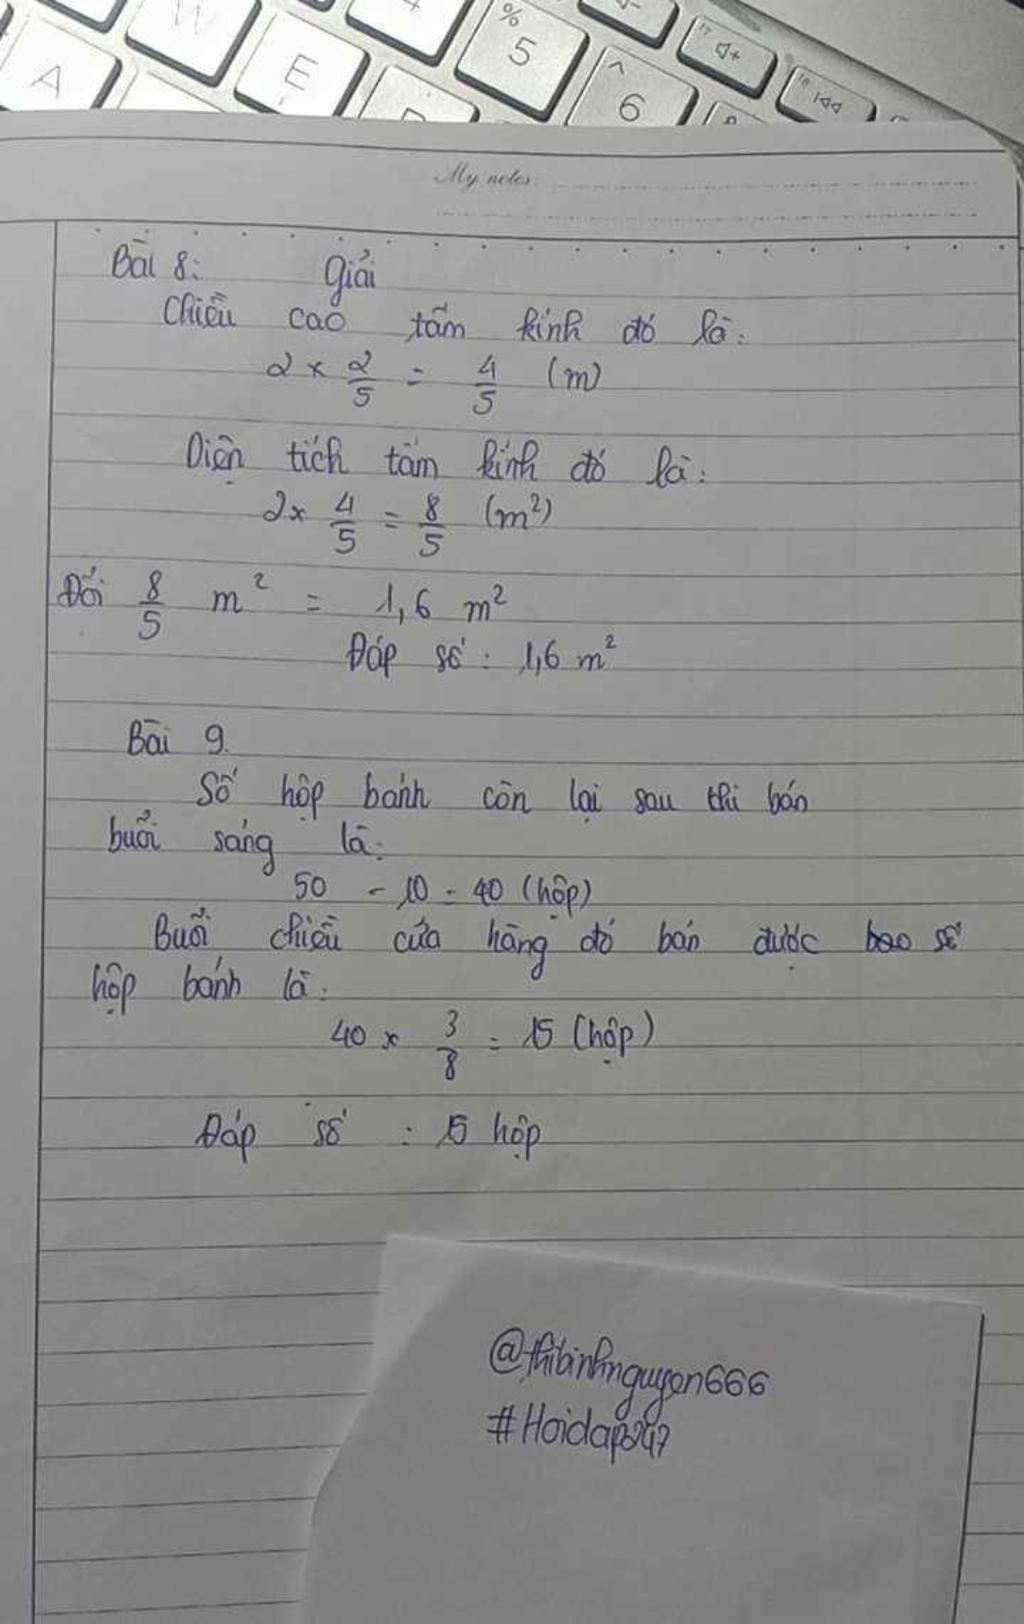 W
E
A
%
5
^
6
My notes:
Bài 8: Giải
Chiều cao tấm kính đó là:
2 × 2/5 = 4/5 (m)
Diện tích tấm kính đó là:
2 × 4/5 = 8/5 (m²)
Đổi 8/5 m² = 1,6 m²
Đáp số: 1,6 m²
Bài 9.
Số hộp bánh còn lại sau thi bán
buổi sáng là:
50 - 10 = 40 (hộp)
Buổi chiều cửa hàng đó bán được bao số
hộp bánh là:
40 × 3/8 = 15 (hộp)
Đáp số : 15 hộp
@thibinhnguyen666
#Hoidap247